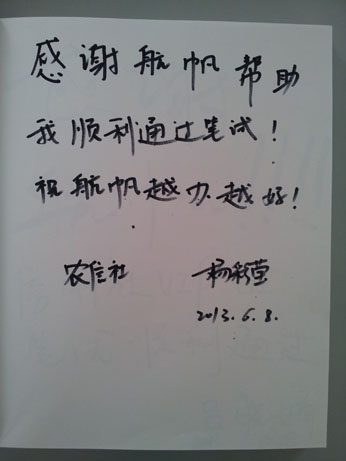 感谢航帆帮助
我顺利通过笔试！
祝航帆越办越好！
农信社 杨彩莹
2013.6.8.